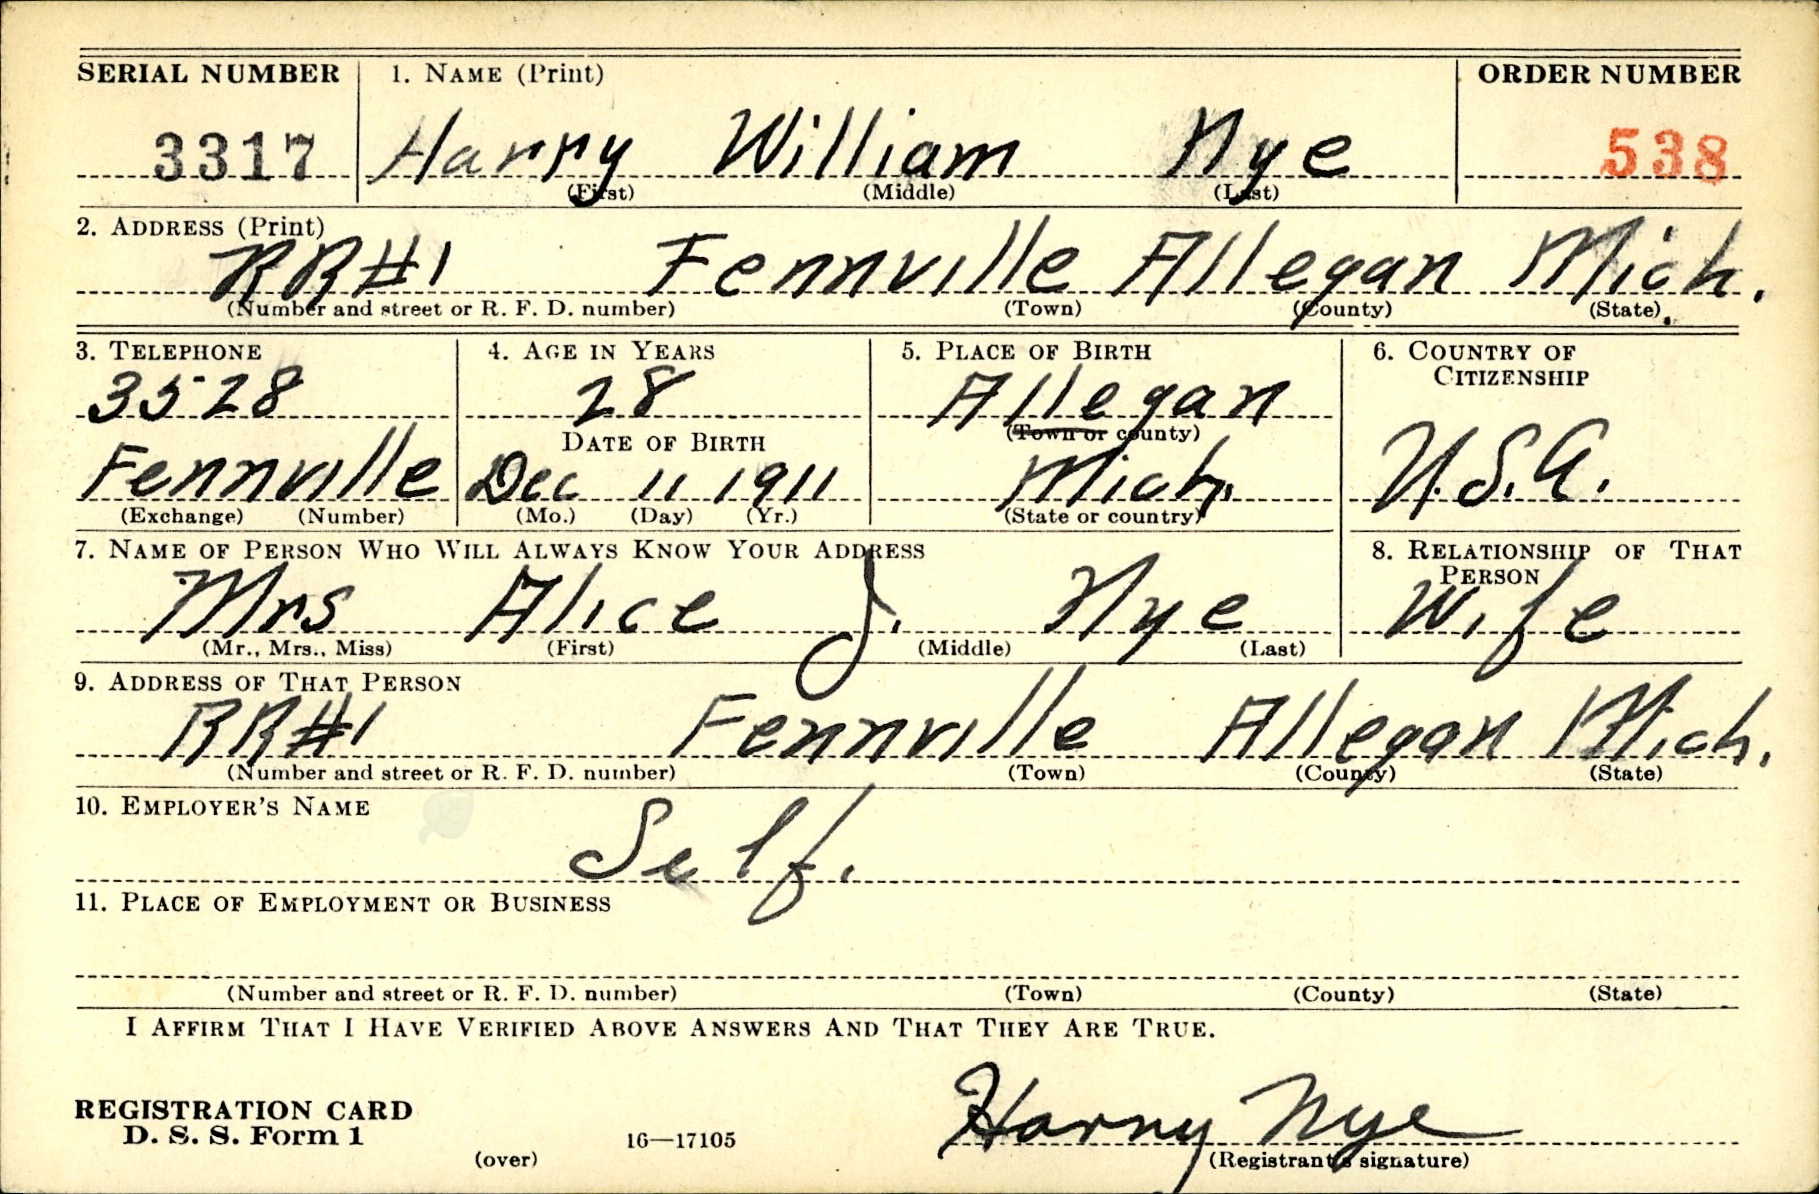 SERIAL NUMBER 1. NAME (Print) ORDER NUMBER
3317 Harry William Nye 538
(First) (Middle) (Last)
2. ADDRESS (Print)
RR#1 Fennville Allegan Mich.
(Number and street or R. F. D. number) (Town) (County) (State)
3. TELEPHONE 4. AGE IN YEARS 5. PLACE OF BIRTH 6. COUNTRY OF
CITIZENSHIP
3528 28 Allegan
DATE OF BIRTH (Town or county)
Fennville Dec 11 1911 Mich. U.S.A.
(Exchange) (Number) (Mo.) (Day) (Yr.) (State or country)
7. NAME OF PERSON WHO WILL ALWAYS KNOW YOUR ADDRESS 8. RELATIONSHIP OF THAT
PERSON
Mrs Alice J. Nye Wife
(Mr., Mrs., Miss) (First) (Middle) (Last)
9. ADDRESS OF THAT PERSON
RR#1 Fennville Allegan Mich.
(Number and street or R. F. D. number) (Town) (County) (State)
10. EMPLOYER'S NAME
Self.
11. PLACE OF EMPLOYMENT OR BUSINESS
(Number and street or R. F. D. number) (Town) (County) (State)
I AFFIRM THAT I HAVE VERIFIED ABOVE ANSWERS AND THAT THEY ARE TRUE.
REGISTRATION CARD
D. S. S. Form 1 16—17105 Harry Nye
(over) (Registrant's signature)